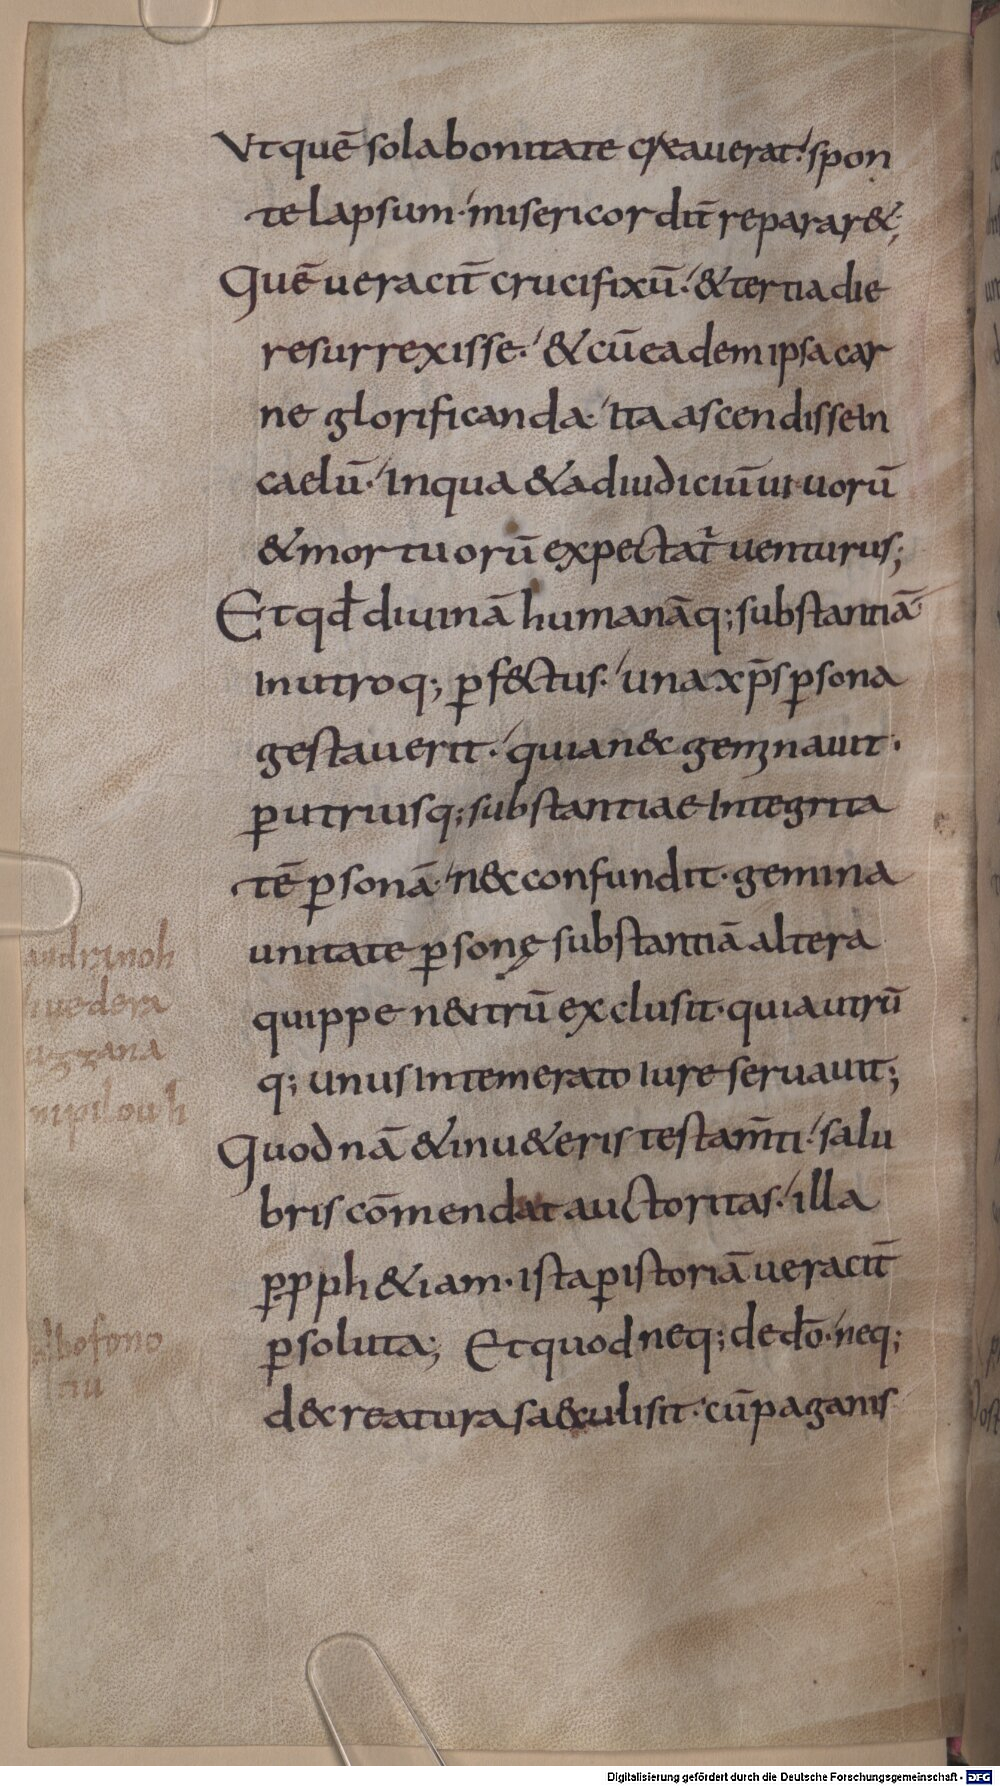 Vt quē sola bonitate creauerat. spon
te lapsum. misericordit̄ reparar&;
Quē ueracit̄ crucifixū. & tertia die
resurrexisse. & cū eadem ipsa car
ne glorificanda. ita ascendisse in
caelū. In qua & ad iudiciū uiuorū
& mortuorū expectat᷑ uenturus;
Et qđ diuinā humanāq; substantiā
In utroq; ꝑf&ctus. una xp̄s ꝑsona
gestauerit. quia n&c geminauit.
ꝑ utriusq; substantiae Integrita
tē ꝑsonā. n&c confundit. gemina
unitate ꝑsonę substantiā altera
quippe n&trū exclusit. quia utrū
q; unus Intemerato Iure seruauit;
Quod nā & in u&eris testam̄ti. salu
bris cōmendat auctoritas. illa
ꝑ pph&iam. ista ꝑ istoriā ueracit̄
ꝑsoluta; Et quod neq; de dō. neq;
de creatura saeculi sit. cū paganis
Digitalisierung gefördert durch die Deutsche Forschungsgemeinschaft - DFG